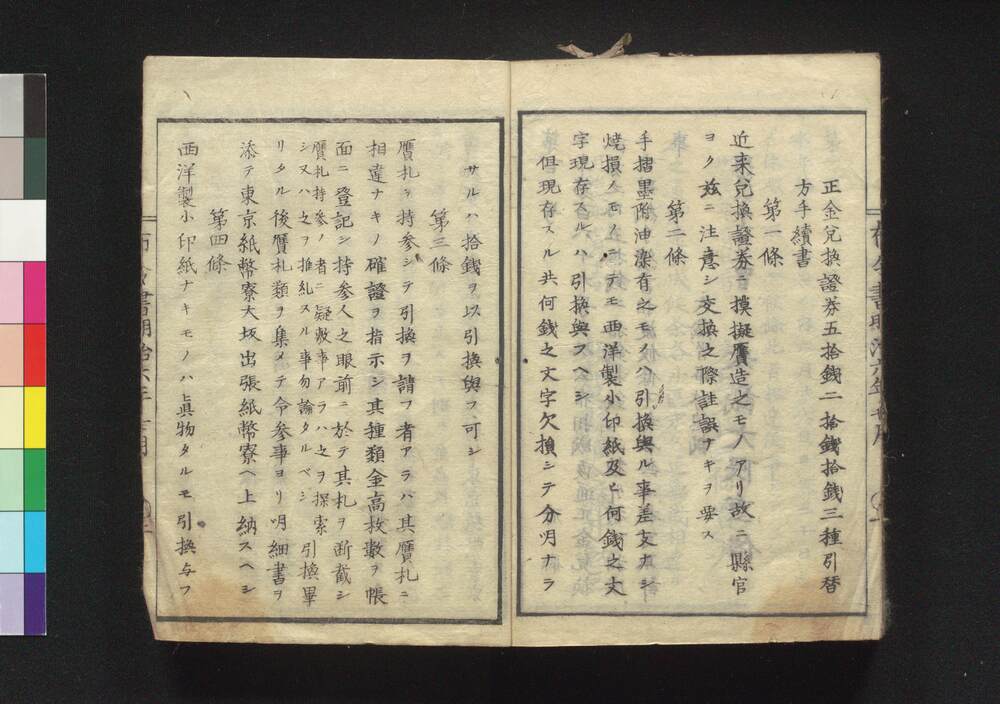 正金兌換證券五拾錢二拾錢拾錢三種引替
方手續書
第一條
近来兌換證券ニ摸擬贋造之モノアリ故ニ縣官
ヨク玆ニ注意シ交換之際註誤ナキヲ要ス
第二條
手摺墨附油染有之モノハ引換與ル事差支ナシ
燒損ノモノニテモ西洋製小印紙及ヒ何錢之文
字現存スルハ引換與フヘシ
俱現存スル共何錢之文字欠損シテ分明ナラ
サルハ拾錢ヲ以引換與フ可シ
第三條
贋札ヲ持参シテ引換ヲ請フ者アラハ其贋札ニ
相違ナキノ確證ヲ指示シ其種類金高枚數ヲ帳
面ニ登記シ持参人之眼前ニ於テ其札ヲ断截シ
贋札持参ノ者ニ疑敷事アラハ之ヲ探索
シ又ハ之ヲ推糺スル事勿論タルベシ引換畢
リタル後贋札類ヲ集メテ令参事ヨリ明細書ヲ
添テ東京紙幣寮大坂出張紙幣寮ヘ上納スヘシ
第四條
西洋製小印紙ナキモノハ眞物タルモ引換与フ
明治六年七月